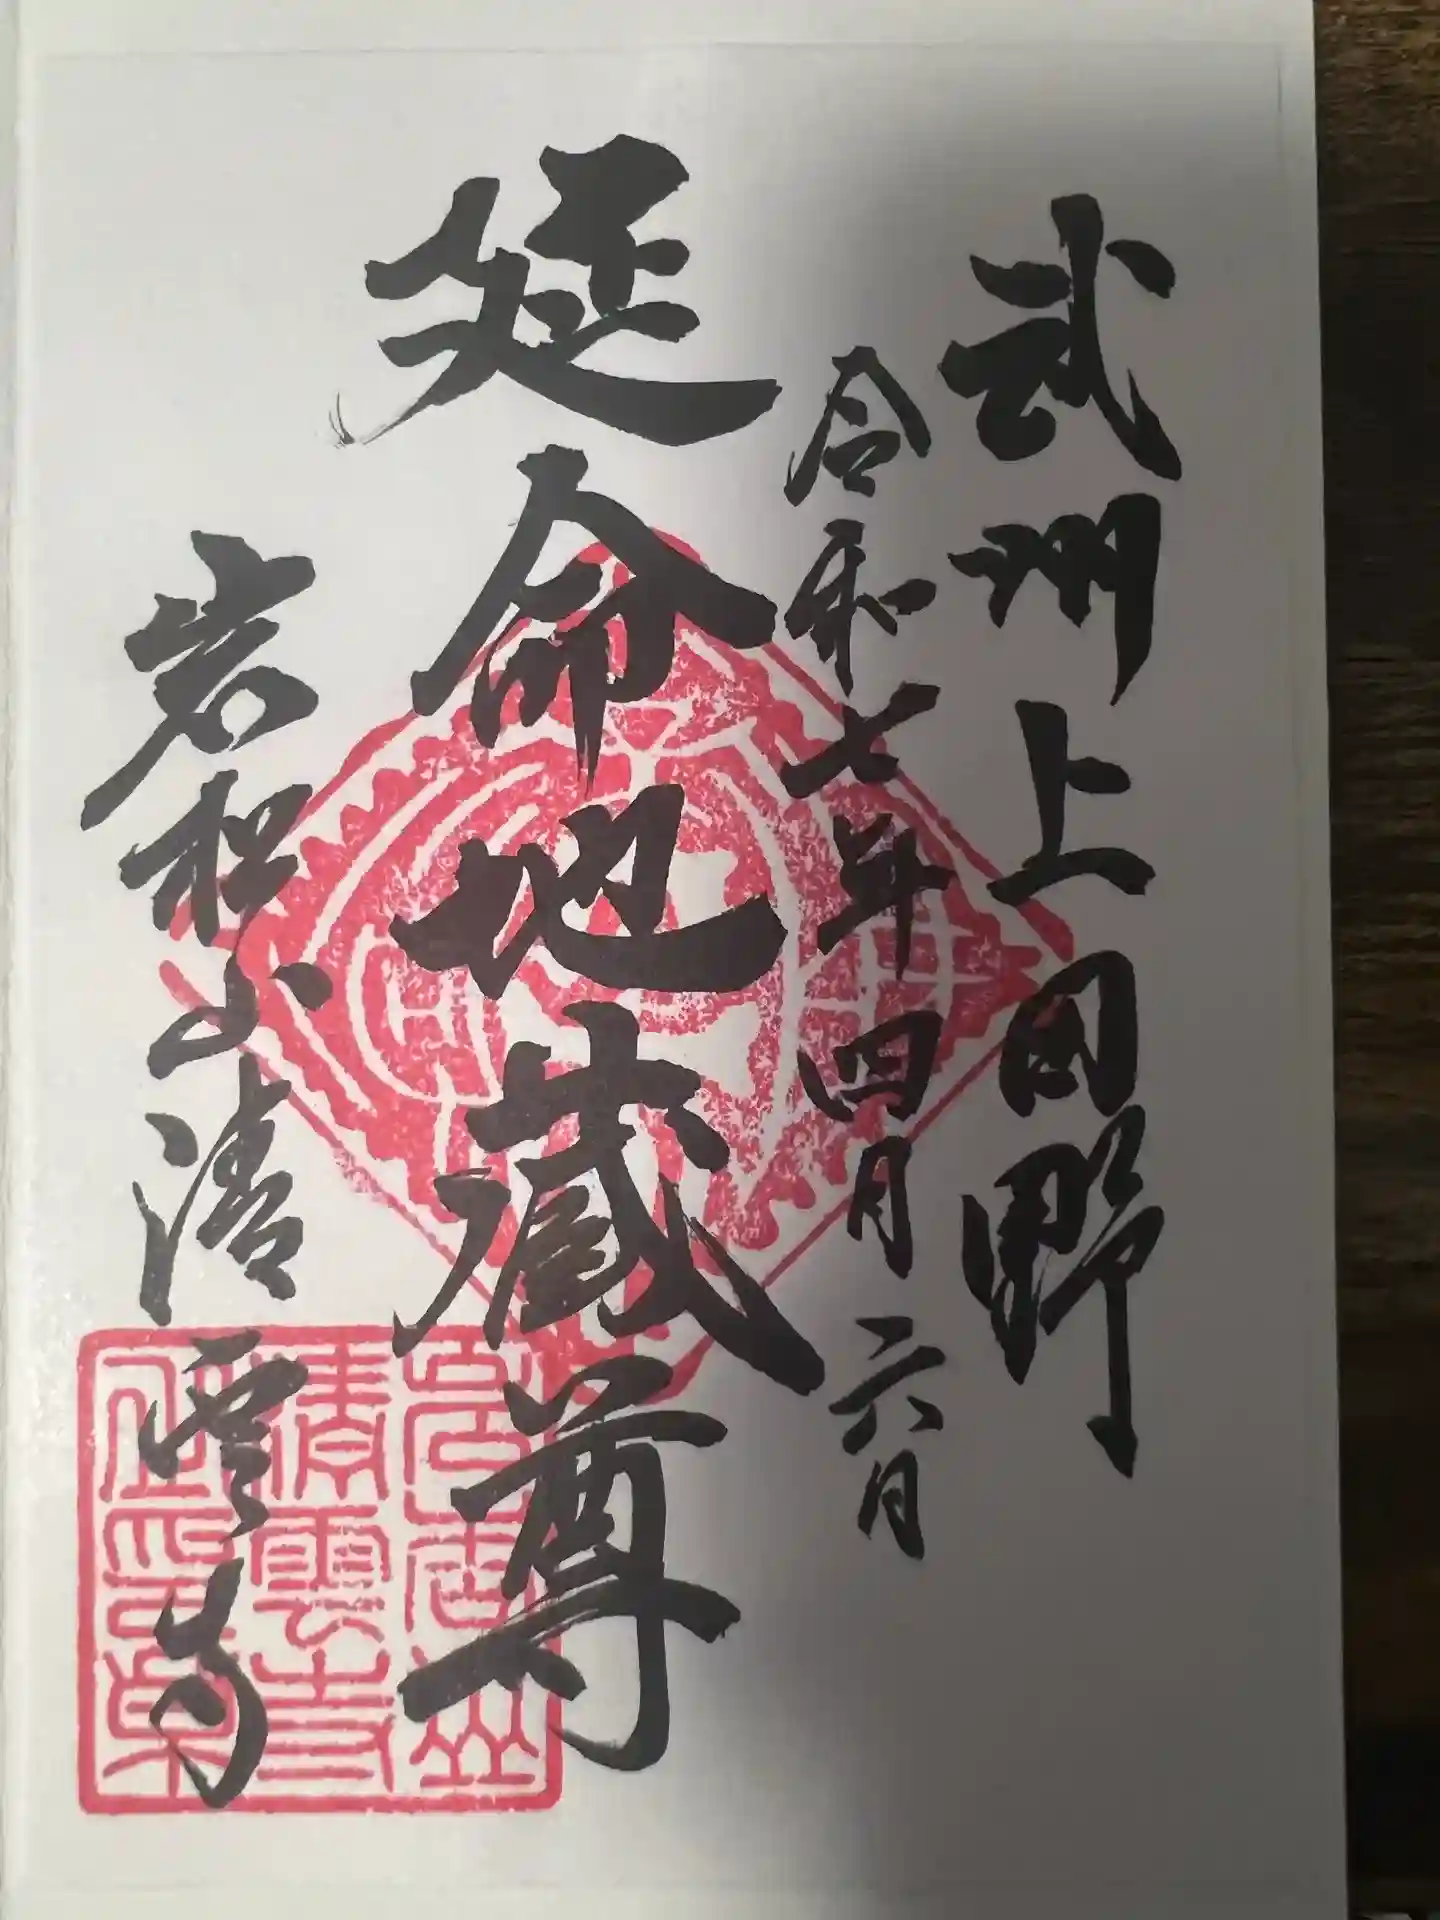 武州上田野
令和七年四月六日
延命地蔵尊
岩松山清雲寺
清雲寺